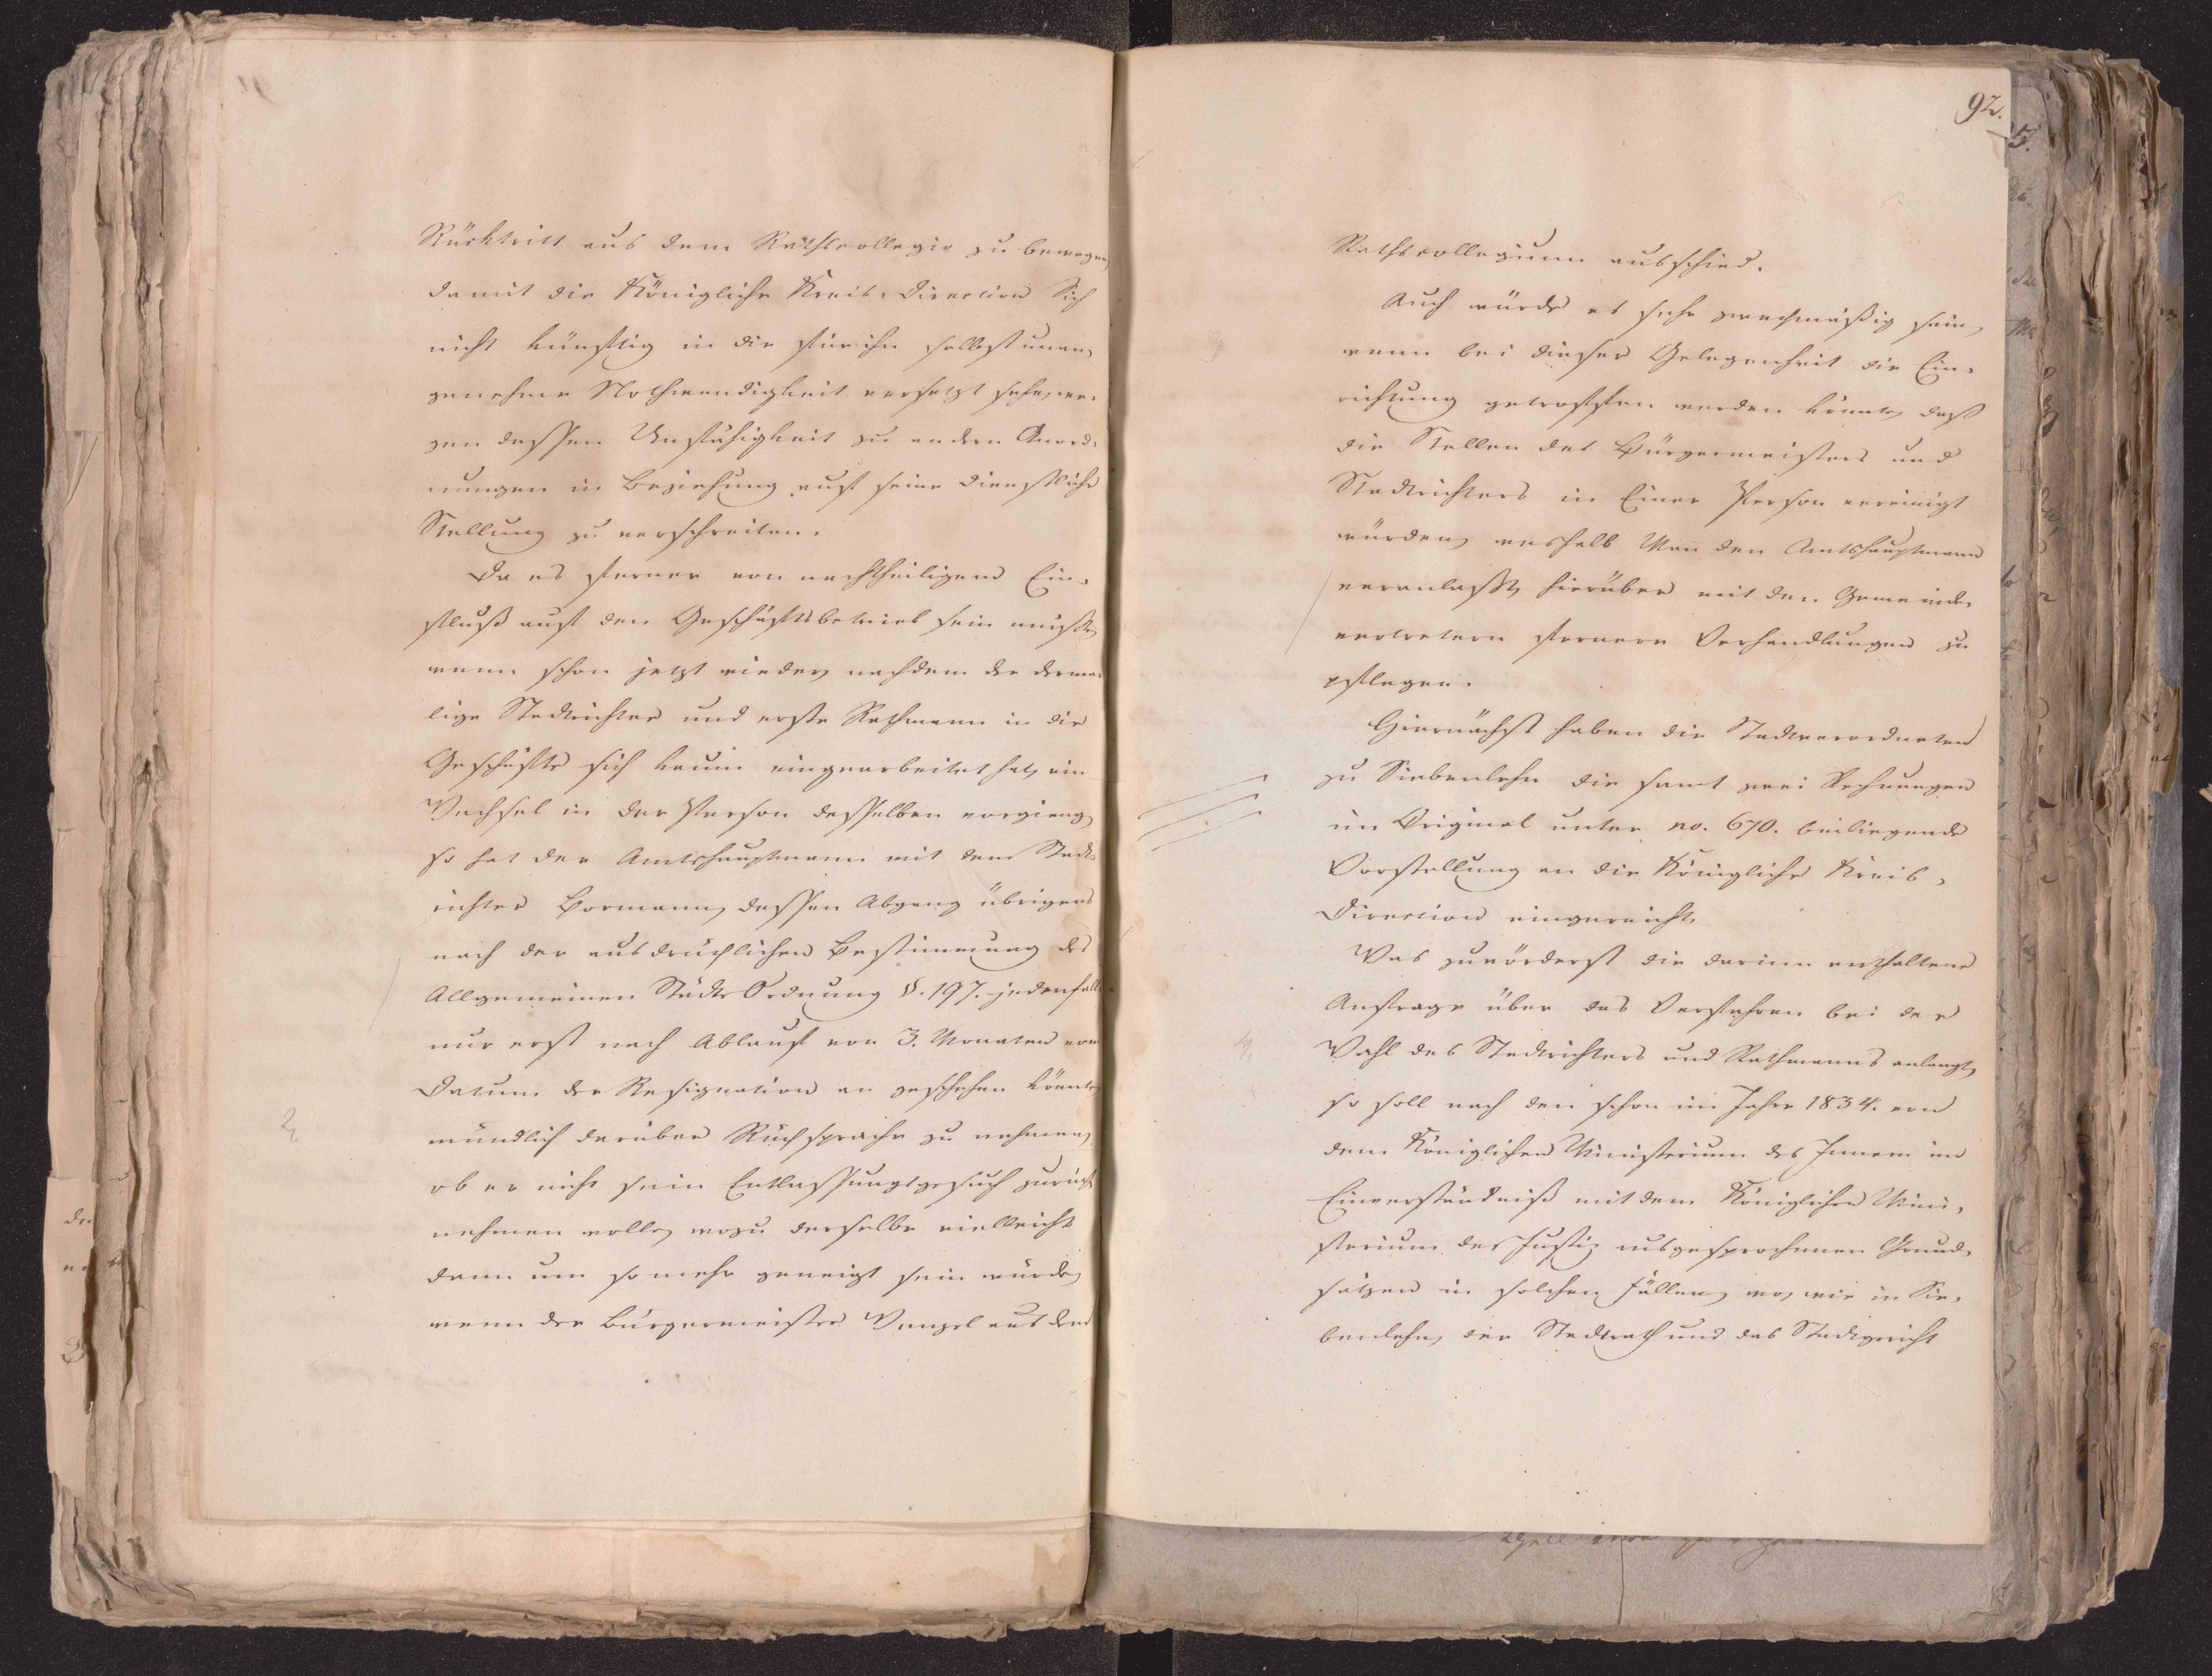 Rücktritt aus dem Rathscollegio zu bewegen,
damit die Königliche Kreis-Direction Sich
nicht künftig in die für ihn selbst unan-
genehme Nothwendigkeit versetzt sehe, we-
gen dessen Unfähigkeit zu andern Anord-
nungen in Beziehung auf seine dienstliche
Stellung zu verschreiten.
Da es ferner von nachtheiligem Ein-
fluß auf den Geschäftsbetrieb sein müßte,
wenn schon jetzt wieder, nachdem der derma-
lige Stadtrichter und erste Rathmann in die
Geschäfte sich kaum eingearbeitet hat, ein
Wechsel in der Person desselben vorgieng,
so hat der Amtshauptmann mit dem Stadt-
richter Bormann, dessen Abgang übrigens
nach der ausdrücklichen Bestimmung der
Allgemeinen Städte Ordnung §. 197. jedenfalls
nur erst nach Ablauf von 3. Monaten vom
Datum der Resignation an geschehen könnte,
2,
mündlich darüber Rücksprache zu nehmen,
ob er nicht sein Entlassungsgesuch zurück
nehmen wolle, wozu derselbe vielleicht
dann um so mehr geneigt sein würde,
wenn der Bürgermeister Wenzel aus dem
92.
Rathscollegium ausschied.
Auch würde es sehr zweckmäßig sein,
3,
wenn bei dieser Gelegenheit die Ein-
richtung getroffen werden könnte, daß
die Stellen des Bürgermeisters und
Stadtrichters in Einer Person vereinigt
würden, weshalb Man den Amtshauptmann
veranlaßt, hierüber mit den Gemeinde-
vertretern fernere Verhandlungen zu
pflegen.
Hiernächst haben die Stadtverordneten
zu Siebenlehn die samt zwei Rechnungen
im Original unter no. 670. beiliegende
Vorstellung an die Königliche Kreis-
Direction eingereicht.
Was zuvörderst die darinn enthaltene
Anfrage über das Verfahren bei der
4,
Wahl des Stadtrichters und Rathmanns anlangt,
so soll nach den schon im Jahre 1834. von
dem Königlichen Ministerium des Innern im
Einverständniß mit dem Königlichen Mini-
sterium der Justiz ausgesprochenen Grund-
sätzen in solchen Fällen, wo, wie in Sie-
benlehn, der Stadtrath und das Stadtgericht